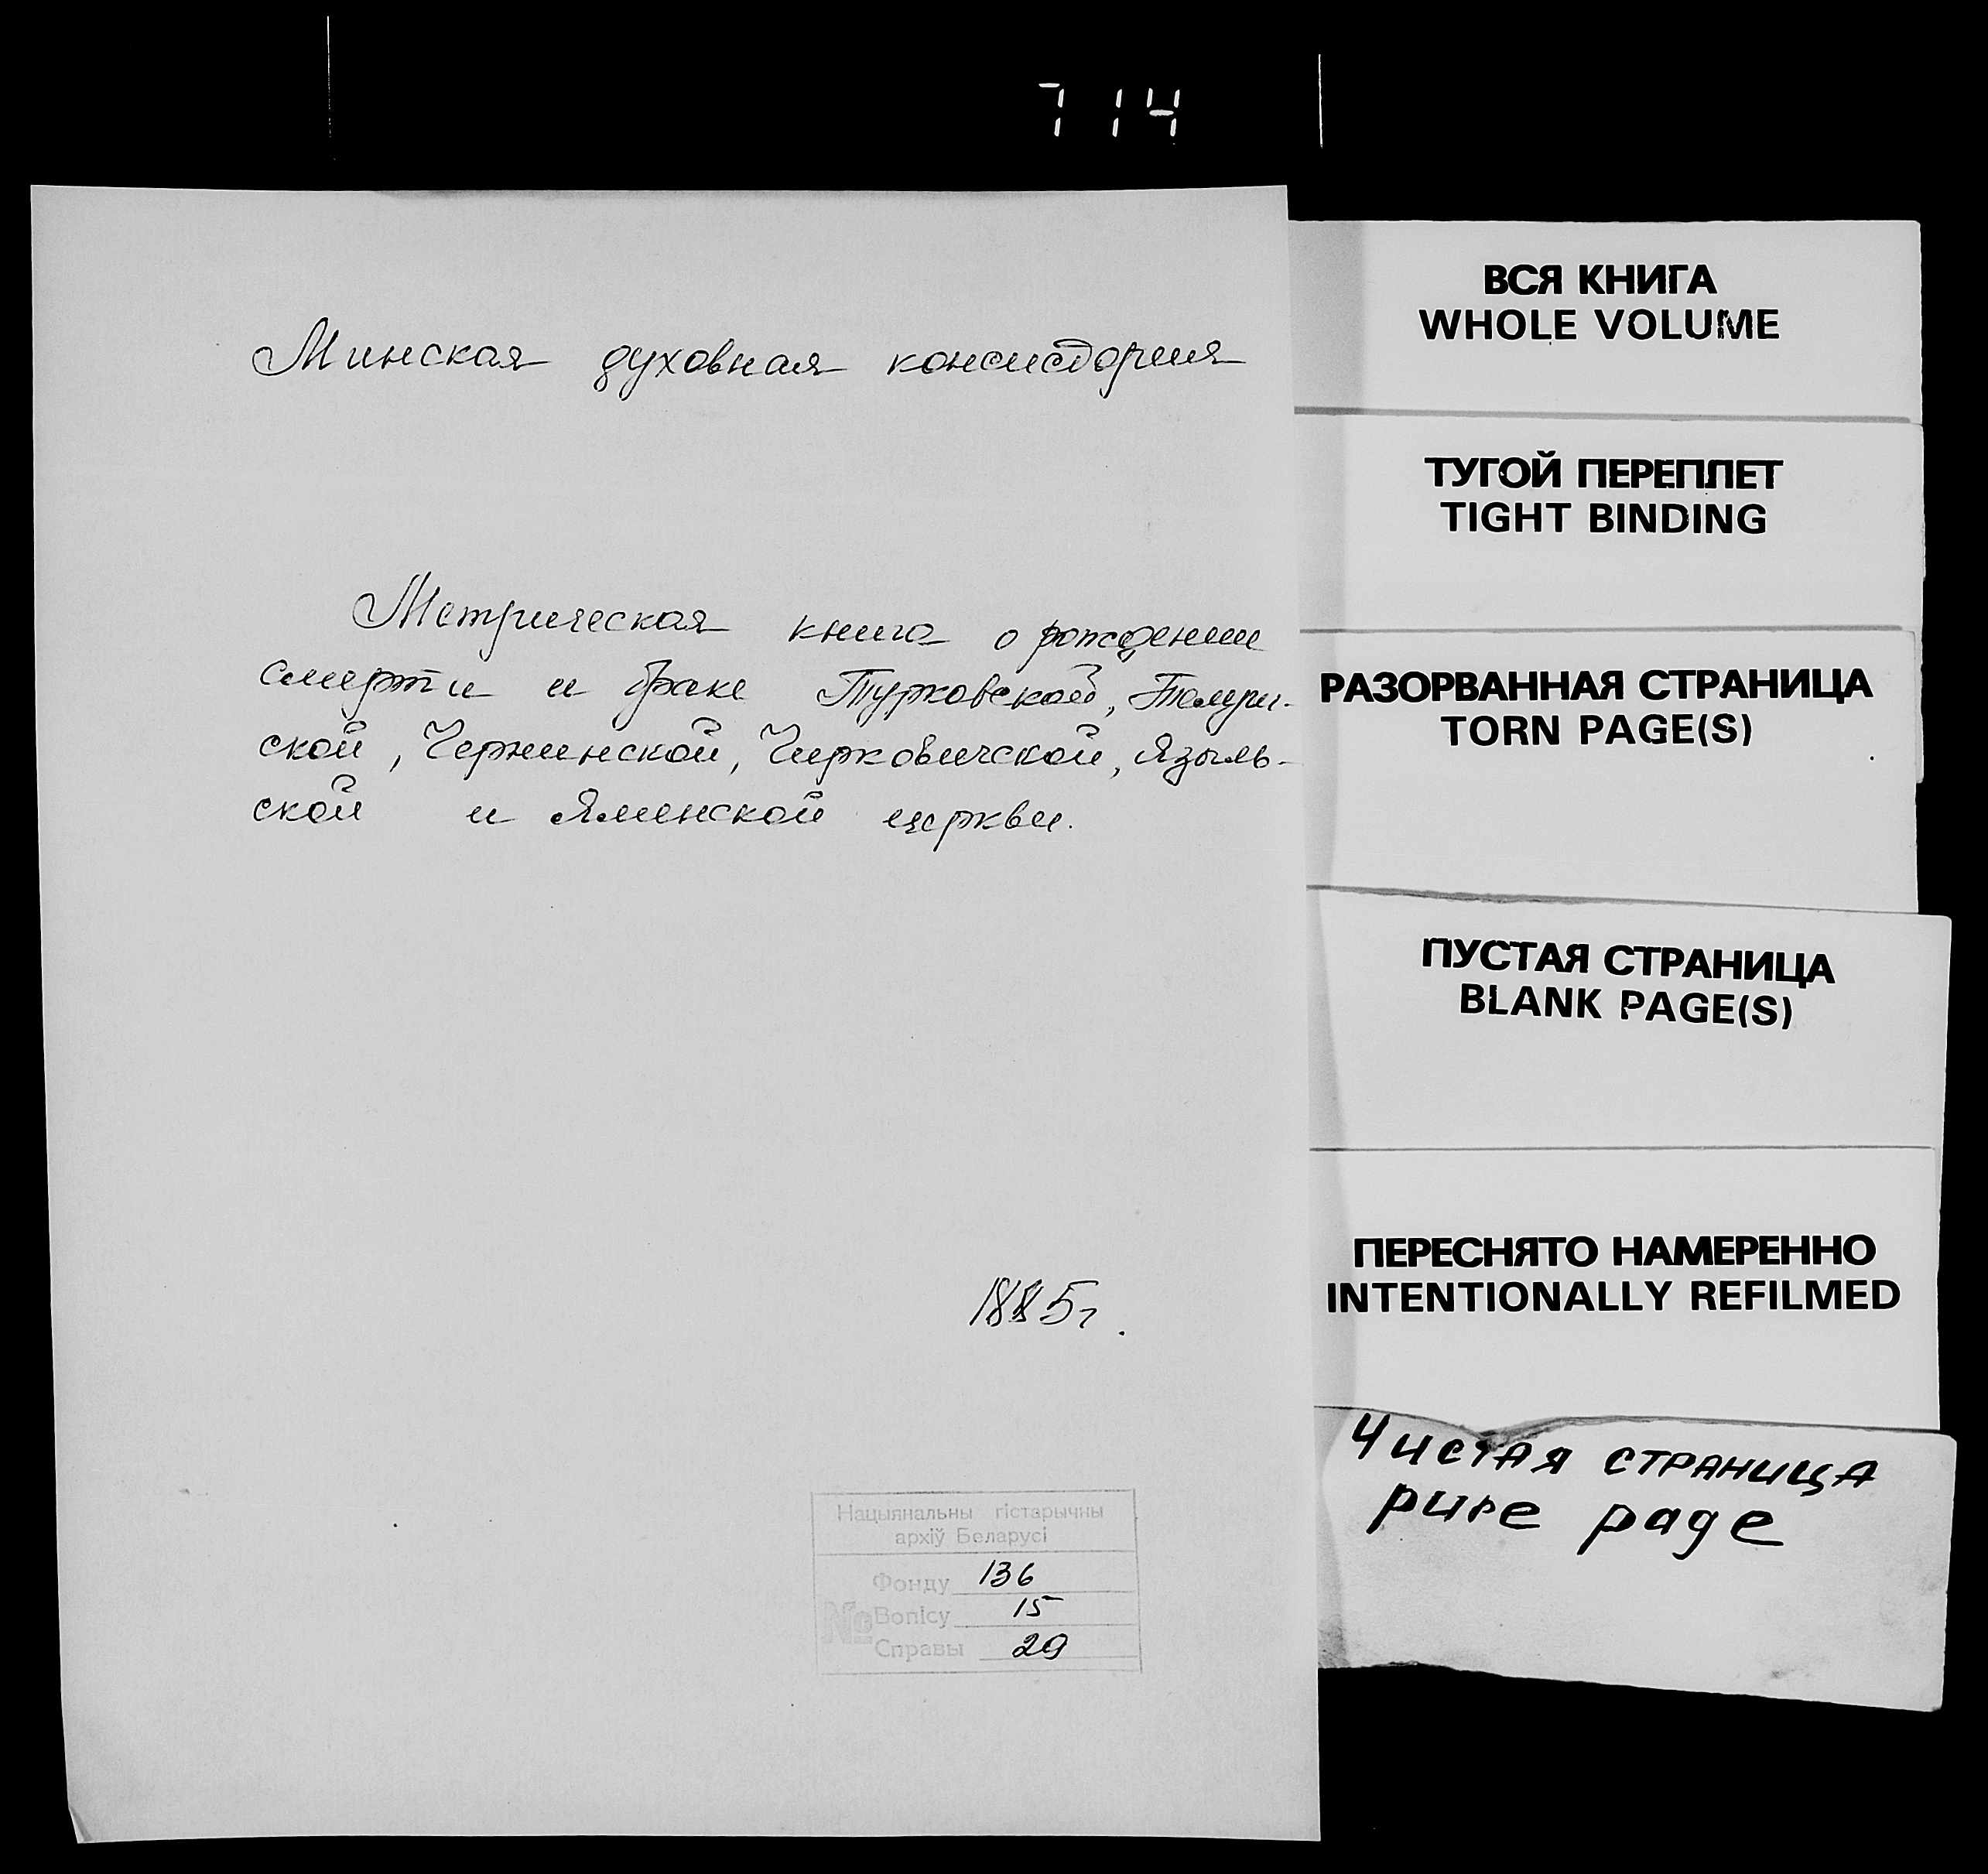 714
Минская духовная консистория
Метрическая книга о рождении
смерти и браке Турковской,
ской, Чернинской, Чирковичской, Языль-
ской и Яминской церкви.
1885г.
Нацыянальны гістарычны
архіў Беларусі
Фонду 136
№ Вопісу 15
Справы 29
ВСЯ КНИГА
WHOLE VOLUME
ТУГОЙ ПЕРЕПЛЕТ
TIGHT BINDING
РАЗОРВАННАЯ СТРАНИЦА
TORN PAGE(S)
ПУСТАЯ СТРАНИЦА
BLANK PAGE(S)
ПЕРЕСНЯТО НАМЕРЕННО
INTENTIONALLY REFILMED
Чистая страница
pure page